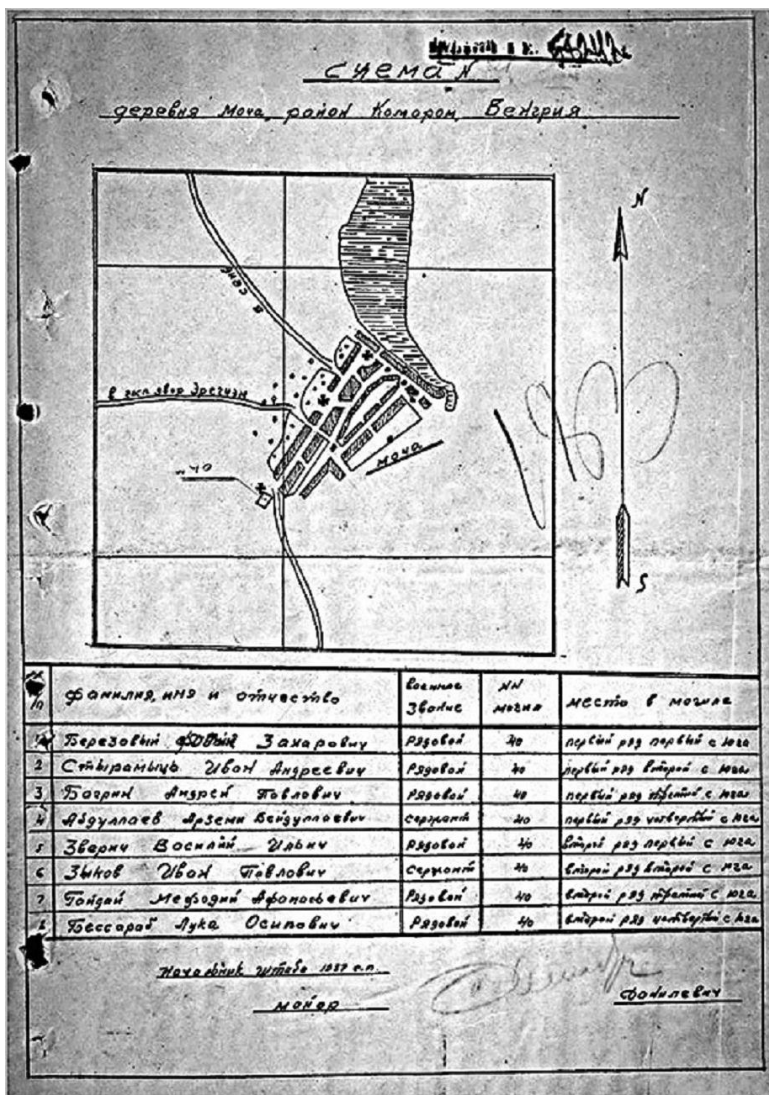 Схема N
деревня Моча, район Комаром, Венгрия
N
в Экп
в экп двор Эрегизн
N 40
Моча
S
п/п фамилия, имя и отчество военное звание NN могил место в могиле
1 Березовый Захарович Рядовой 40 первый ряд первый с юга
2 Стырамыць Иван Андреевич Рядовой 40 первый ряд второй с юга
3 Багрин Андрей Павлович Рядовой 40 первый ряд третий с юга
4 Абдуллаев Арземи Бейдуллаевич сержант 40 первый ряд четвертый с юга
5 Зварич Василий Ильич Рядовой 40 второй ряд первый с юга
6 Зыков Иван Павлович Сержант 40 второй ряд второй с юга
7 Гандай Мефодий Афанасьевич Рядовой 40 второй ряд третий с юга
8 Бессараб Лука Осипович Рядовой 40 второй ряд четвертый с юга
Начальник штаба 1037 с.п.
майор Данилевич